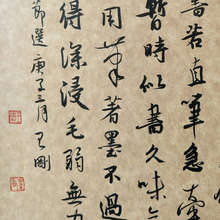 若直筆急牽
暫時似書久味
用筆著墨不過
得深浸毛弱無力
節選庚子三月剛